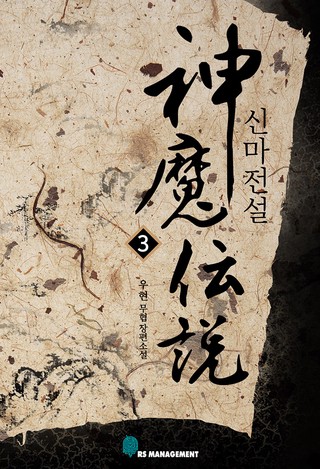 神魔伝説
신마전설
3
우현 무협 장편소설
RS MANAGEMENT